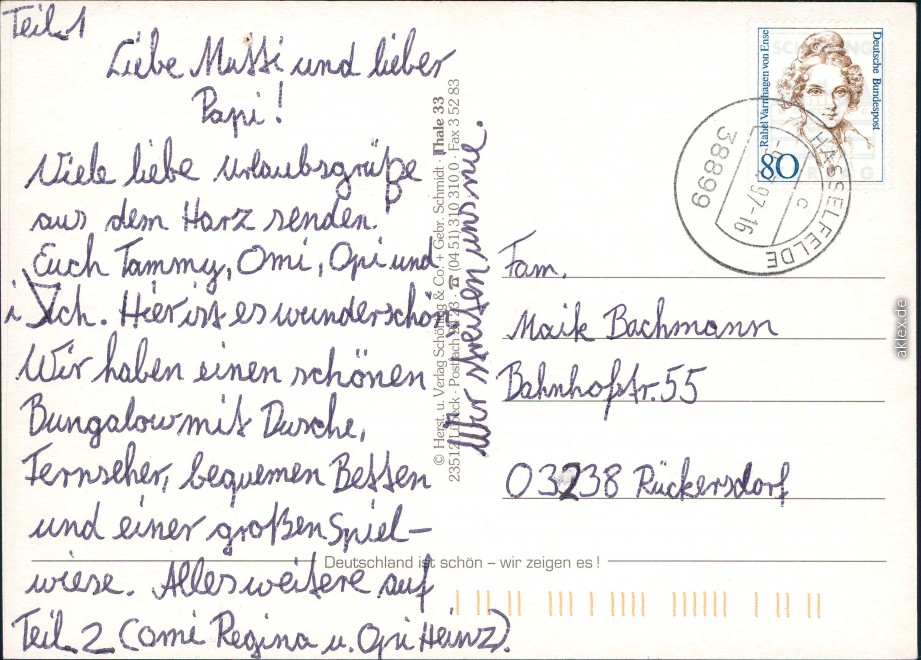 Teil 1
Liebe Mutti und lieber
Papi!
Viele liebe Urlaubsgrüße
aus dem Harz senden
Euch Tammy, Omi, Opi und
ich. Hier ist es wunderschön.
Wir haben einen schönen
Bungalow mit Dusche,
Fernseher, bequemen Betten
und einer großen Spiel-
wiese. Alles weitere auf
Teil 2 (Omi Regina u. Opi Heinz).
Wir streiten uns nie.
© Herst. u. Verlag Schöning & Co. + Gebr. Schmidt · Thale 33
23512 Lübeck · Postfach 23 · ☎ (04 51) 310 310 0 · Fax 3 52 83
Deutsche Bundespost
Rahel Varnhagen von Ense
80
HASSELFELDE
38899
97-16
c
Fam.
Maik Bachmann
Bahnhofstr. 55
03238 Rückersdorf
Deutschland ist schön – wir zeigen es!
aklex.de